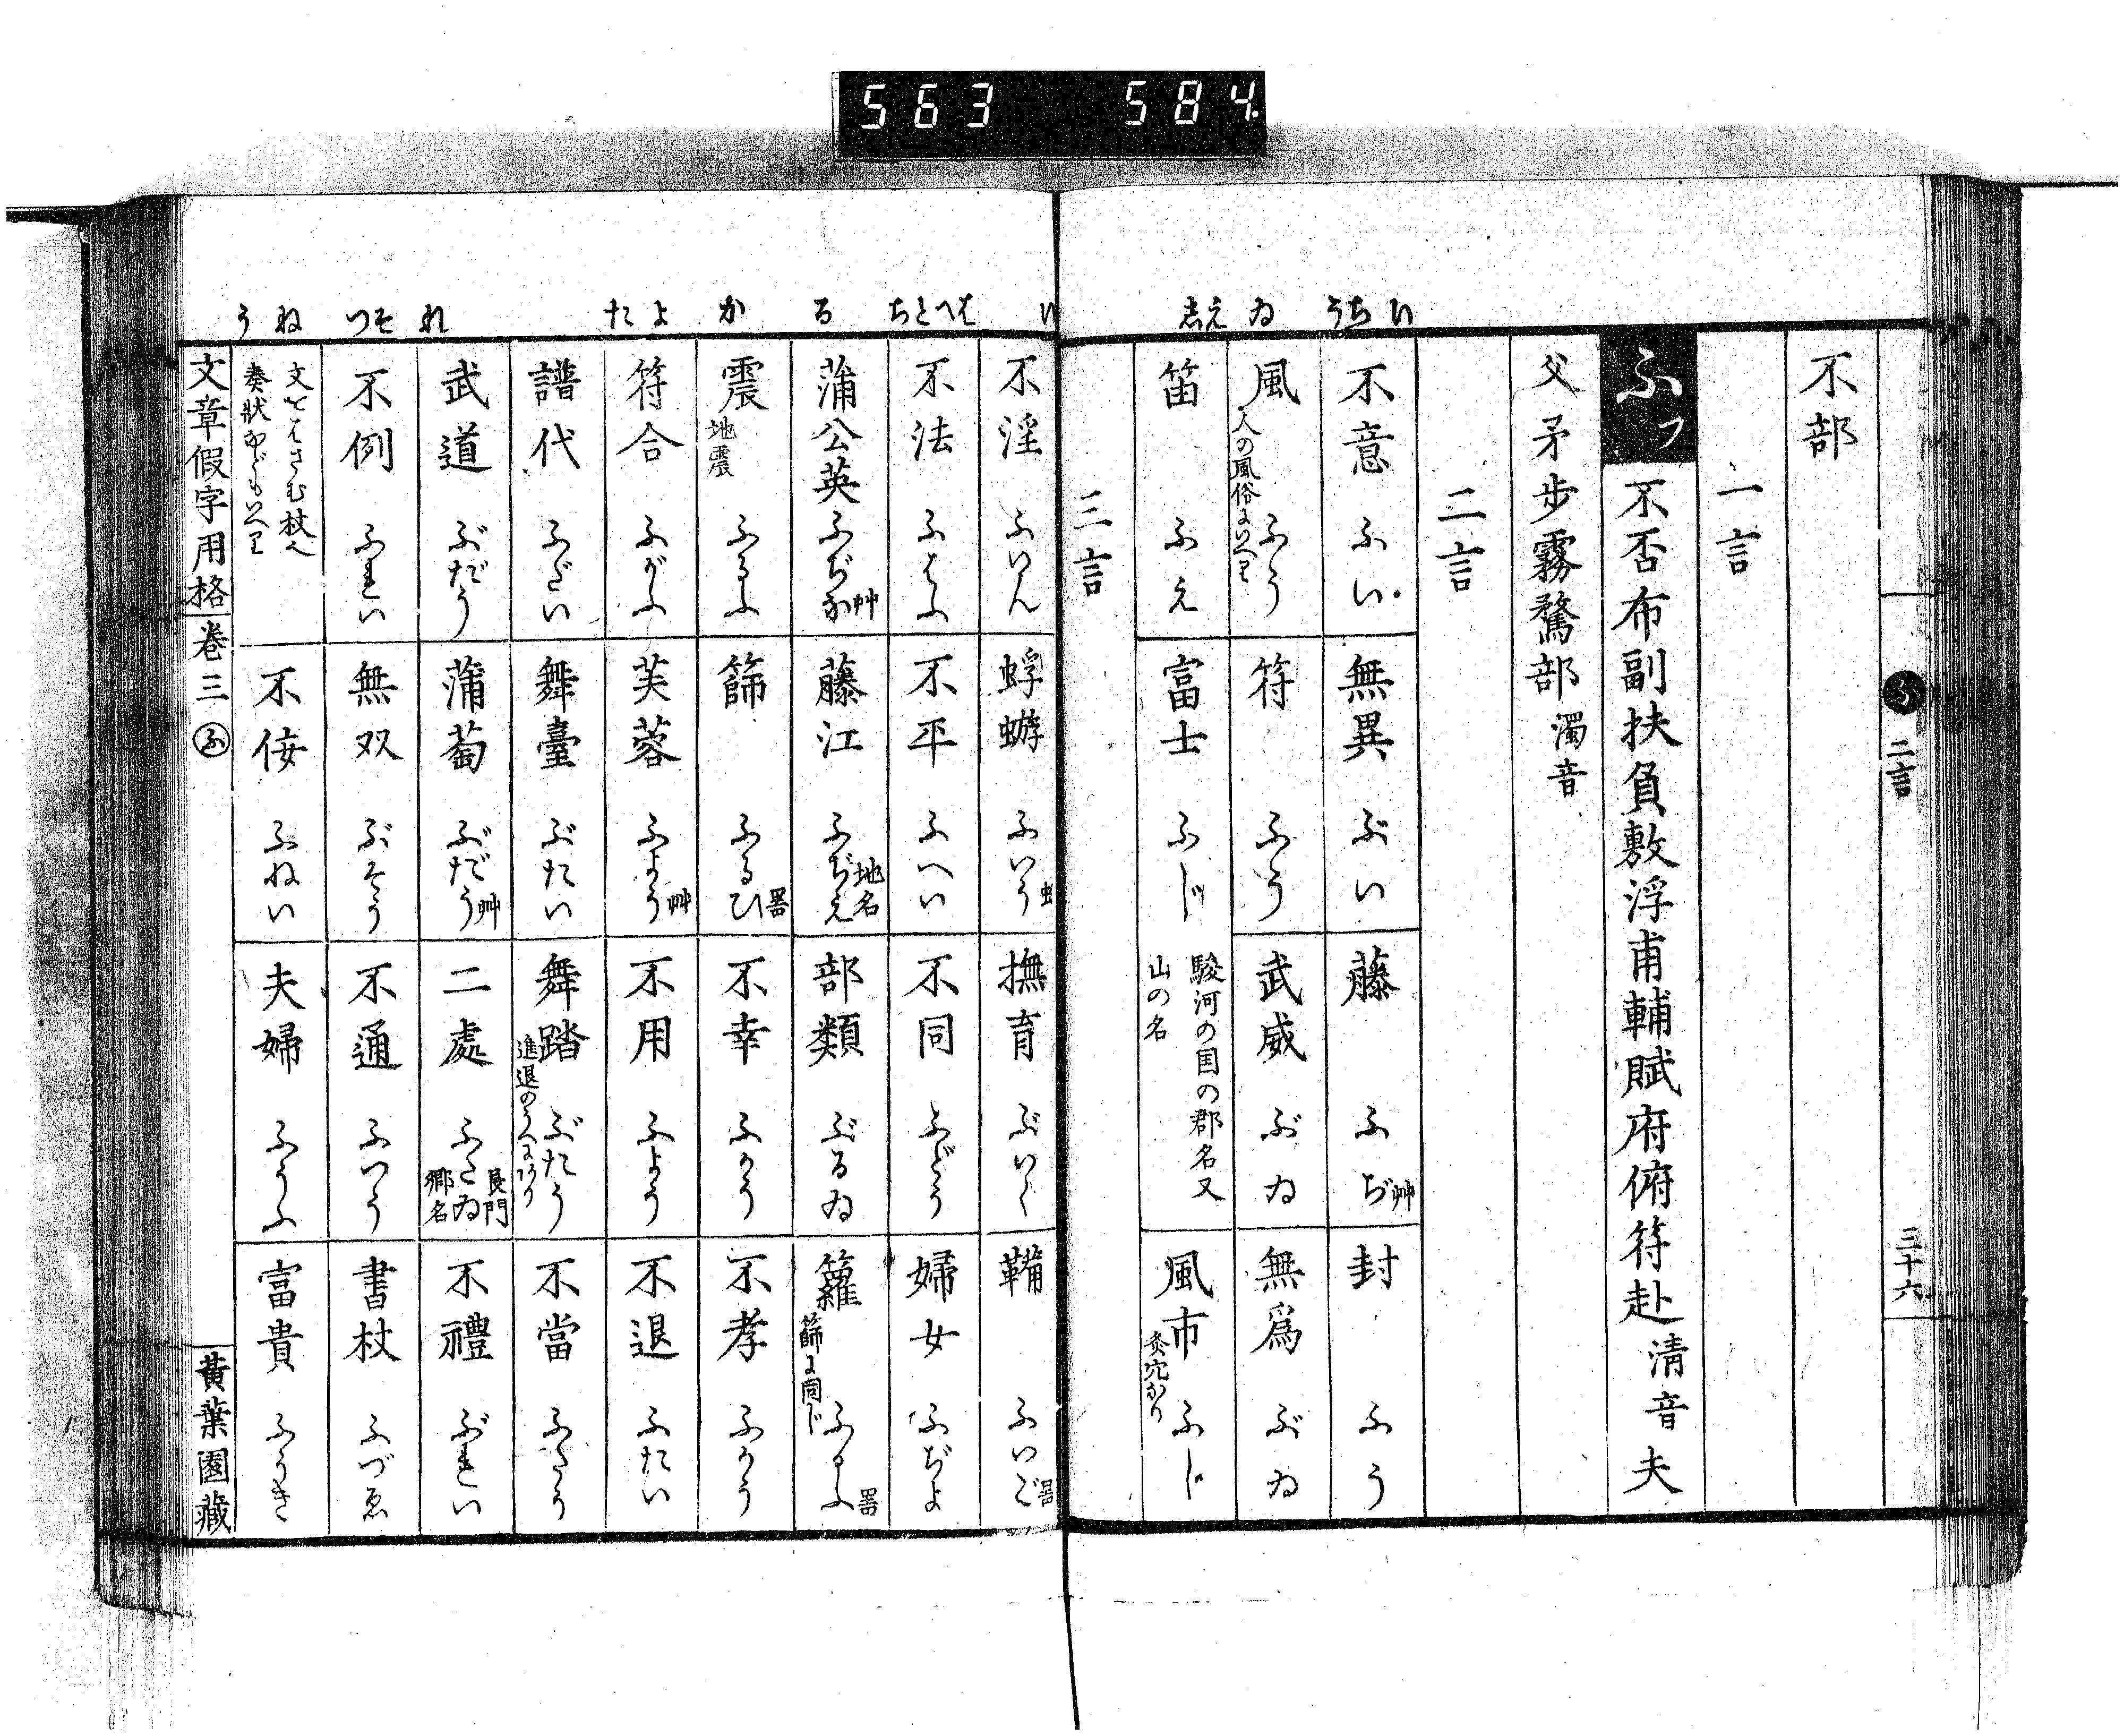 563 584
ふ 二言 三十六
い ちう ゐ え し
不部
一言
ふフ 不否布副扶負敷浮甫輔賦府俯符赴 清音 夫
父矛步霧鶩部 濁音
二言
不意 ふい 無異 ぶい 藤 ふぢ 艸 封 ふう
風 人の風俗にいへり ふう 符 ふう 武威 ぶゐ 無爲 ぶゐ
笛 ふえ 富士 ふじ 駿河の国の郡名又山の名 風市 灸穴なり ふじ
三言
い はへとち る か よ た れ そつ ね う
不淫 ふいん 蜉蝣 ふいう 虫 撫育 ぶいく 鞴 ふいご 器
不法 ふはふ 不平 ふへい 不同 ふどう 婦女 ふぢよ
蒲公英 ふぢな 艸 藤江 ふぢえ 地名 部類 ぶるゐ 籮 篩に同じ ふるふ 器
震 地震 ふるふ 篩 ふるひ 器 不幸 ふかう 不孝 ふかう
符合 ふがふ 芙蓉 ふよう 艸 不用 ふよう 不退 ふたい
譜代 ふだい 舞臺 ぶたい 舞踏 ぶたう 不當 ふたう
武道 ぶだう 蒲萄 ぶだう 艸 二處 ふたゐ 長門郷名 不禮 ぶれい
不例 ふれい 無双 ぶそう 不通 ふつう 書杖 ふづゑ
文をはさむ杖也 奏狀などもいへり 不佞 ふねい 夫婦 ふうふ 富貴 ふうき
文章假字用格 卷三 ふ 黃葉園藏